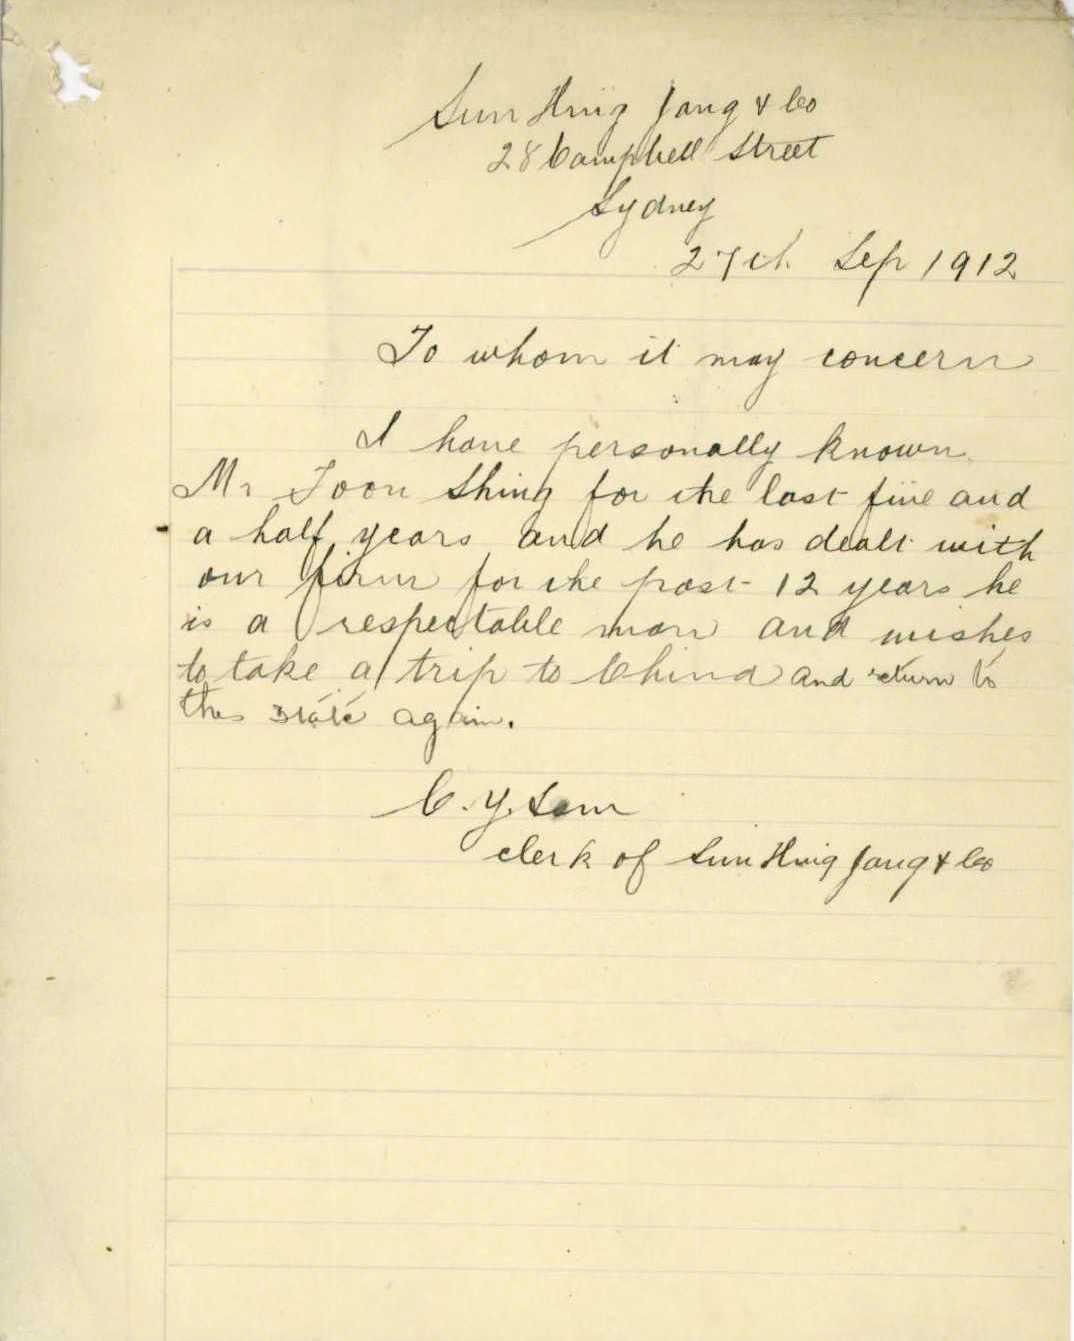 Sun Hing Jang & Co
28 Campbell Street
Sydney
27th Sep 1912
To whom it may concern
I have personally known
Mr Toon Shing for the last five and
a half years and he has dealt with
our firm for the past 12 years he
is a respectable man and wishes
to take a trip to China and return to
this state again.
C. Y. Sam
clerk of Sun Hing Jang & Co